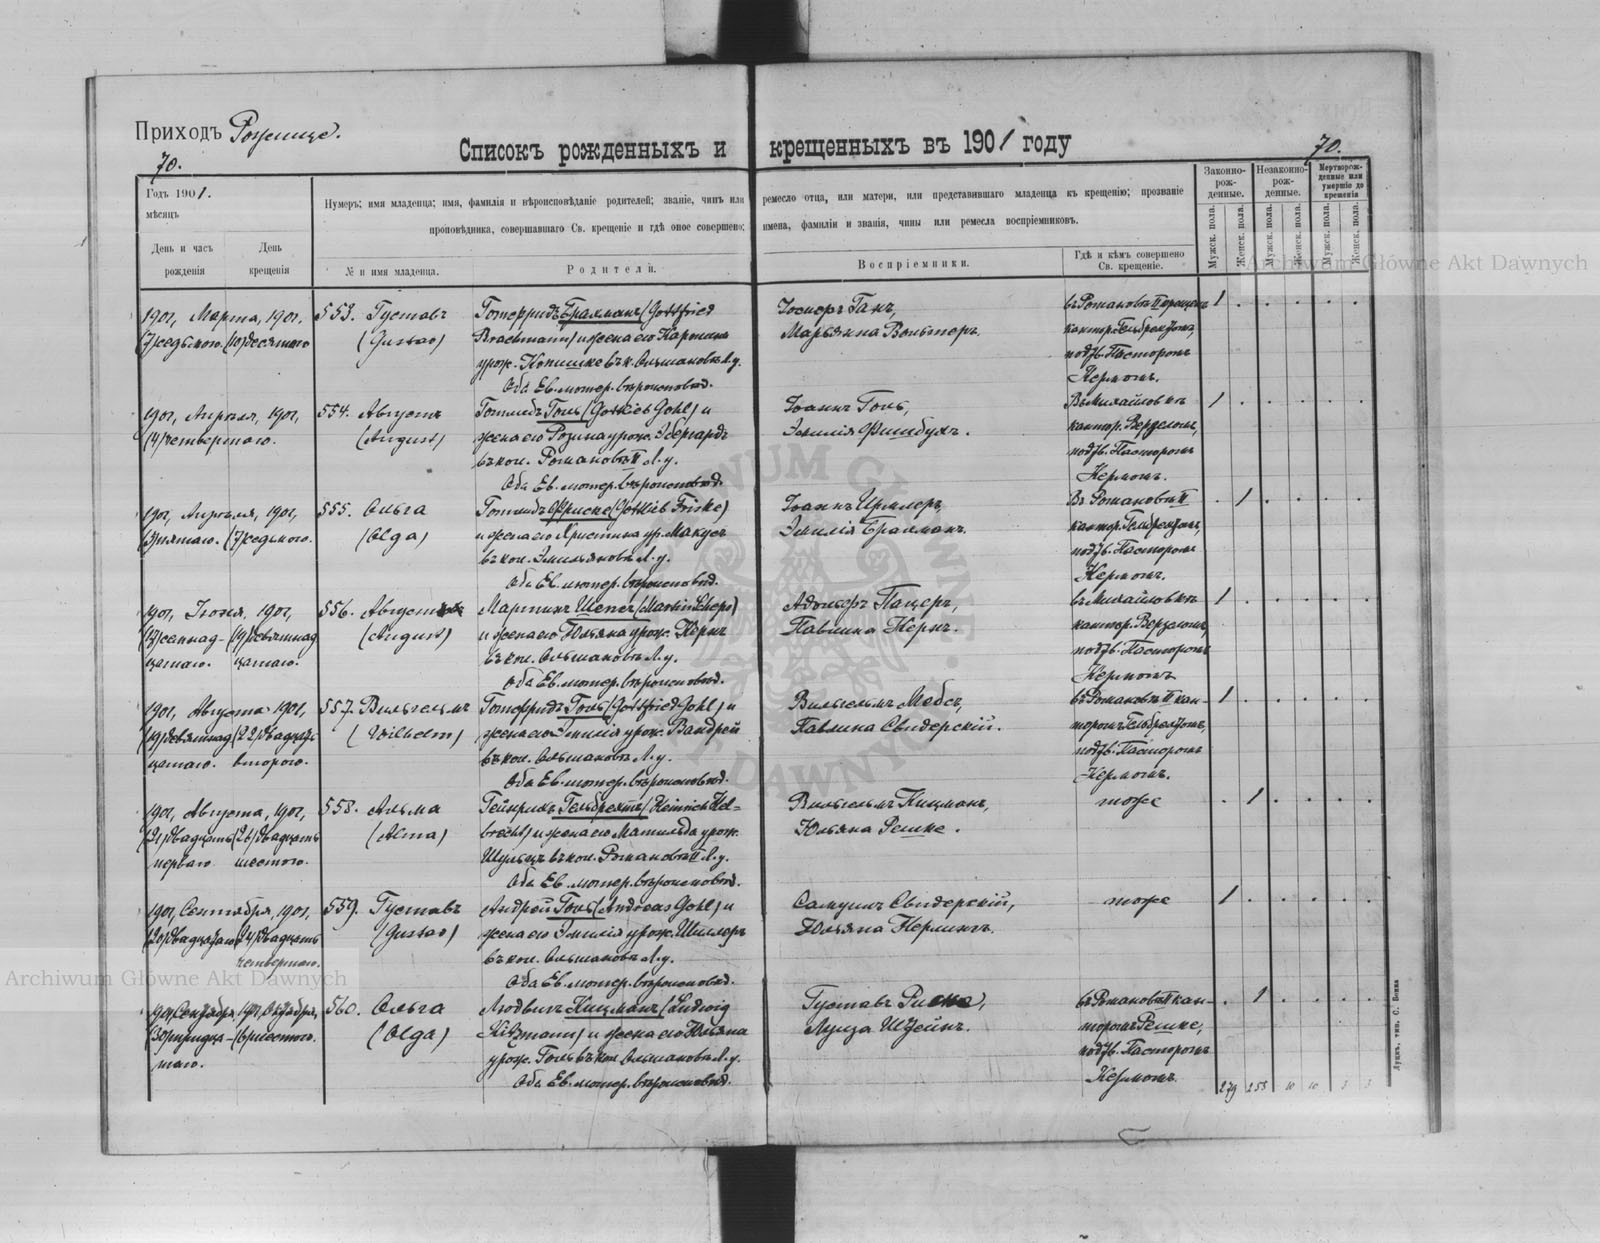 Приходъ Рожище.
70.
Списокъ рожденныхъ и крещенныхъ въ 1901 году
70.
Годъ 1901.
мѣсяцъ
День и часъ рожденія
День крещенія
Нумеръ; имя младенца; имя, фамилія и вѣроисповѣданіе родителей; званіе, чинъ или ремесло отца, или матери, или представившаго младенца къ крещенію; прозваніе
проповѣдника, совершавшаго Св. крещеніе и гдѣ оное совершено; имена, фамиліи и званія, чины или ремесла воспріемниковъ.
№ и имя младенца.
Родители.
Воспріемники.
Гдѣ и кѣмъ совершено Св. крещеніе.
Законно-рож-денные.
Незаконно-рож-денные.
Мертворож-денные или умершіе до крещенія
Мужск. пола.
Женск. пола.
Мужск. пола.
Женск. пола.
Мужск. пола.
Женск. пола.
1901, Марта, 1901,
(7)седьмого. (10)десятого
553. Густавъ
(Gustav)
Готфридъ Брахманъ (Gottfried
Brachmann) и жена его Каролина
урож. въ к. Ольшановкѣ Л. у.
Оба Ев. лютер. вѣроисповѣд.
Іосифъ Ганъ,
Марьянна Вольтеръ.
въ Романовкѣ II
кантор. Гельбрехтомъ,
подтв. Пасторомъ
Кермомъ.
1
1901, Апрѣля, 1901,
(4)четвертаго.
554. Августъ
(August)
Готлибъ Голь (Gottlieb Gohl) и
жена его Розина урож. Эбергардъ
въ кол. Романовкѣ II Л. у.
Оба Ев. лютер. вѣроисповѣд.
Іоаннъ Голь,
Эмилія Фишбухъ.
Въ Михайловкѣ
кантор. Верделомъ,
подтв. Пасторомъ
Кермомъ.
1
1901, Апрѣля, 1901,
пятаго. (7)седьмого.
555. Ольга
(Olga)
Готлибъ Фриске (Gottlieb Friske)
и жена его Христина ур. Макусъ
въ кол. Эмильяновкѣ Л. у.
Оба Ев. лютер. вѣроисповѣд.
Іоаннъ Ирмлеръ,
Эмилія Брахманъ.
Въ Романовкѣ II
кантор. Гельбрехтомъ,
подтв. Пасторомъ
Кермомъ.
1
1901, Іюня, 1901,
556. Августъ
(August)
Мартинъ Шепсъ (Martin Scheps)
и жена его Юльяна урож. Кернъ
въ кол. Ольшановкѣ Л. у.
Оба Ев. лютер. вѣроисповѣд.
Адольфъ Пацеръ,
Павлина Кернъ.
въ Михайловкѣ
кантор. Верделомъ,
подтв. Пасторомъ
Кермомъ
1
1901, Августа, 1901,
(19)девятнад (22)двадцать
цатаго. второго.
557. Вильгельмъ
(Wilhelm)
Готфридъ Голь (Gottfried Gohl) и
жена его Эмилія урож. Вандрей
въ кол. Ольшановкѣ Л. у.
Оба Ев. лютер. вѣроисповѣд.
Вильгельмъ Мебсъ,
Павлина Свидерскій.
въ Романовкѣ II кан-
торомъ Гельбрехтомъ,
подтв. Пасторомъ
Кермомъ.
1
1901, Августа, 1901,
(21)двадцать (26)двадцать
перваго шестого.
558. Альма
(Alma)
Гейнрихъ Гельбрехтъ (Heinrich Hel-
brecht) и жена его Матильда урож.
Шульцъ въ кол. Романовкѣ II Л. у.
Оба Ев. лютер. вѣроисповѣд.
Вильгельмъ Кицманъ,
Юльяна Решке.
тоже
1
1901, Сентября, 1901,
(20)двадцатаго (24)двадцать
четвертаго.
559. Густавъ
(Gustav)
Андрей Голь (Andreas Gohl) и
жена его Эмилія урож. Шиллеръ
въ кол. Ольшановкѣ Л. у.
Оба Ев. лютер. вѣроисповѣд.
Самуилъ Свидерскій,
Юльяна Керлинъ.
тоже
1
1901, Сентября, 1901, Октября,
(30)тридца- (6)шестого.
таго.
560. Ольга
(Olga)
Людвигъ Кицманъ (Ludwig
Kitzmann) и жена его Юльяна
урож. Голь въ кол. Ольшановкѣ Л. у.
Оба Ев. лютер. вѣроисповѣд.
Густавъ
Луиза Штейнъ.
въ Романовкѣ II кан-
торомъ Решке,
подтв. Пасторомъ
Кермомъ.
1
279 253 10 10 3 3
Луцкъ, тип. С. Бонка
Archiwum Główne Akt Dawnych
Archiwum Główne Akt Dawnych